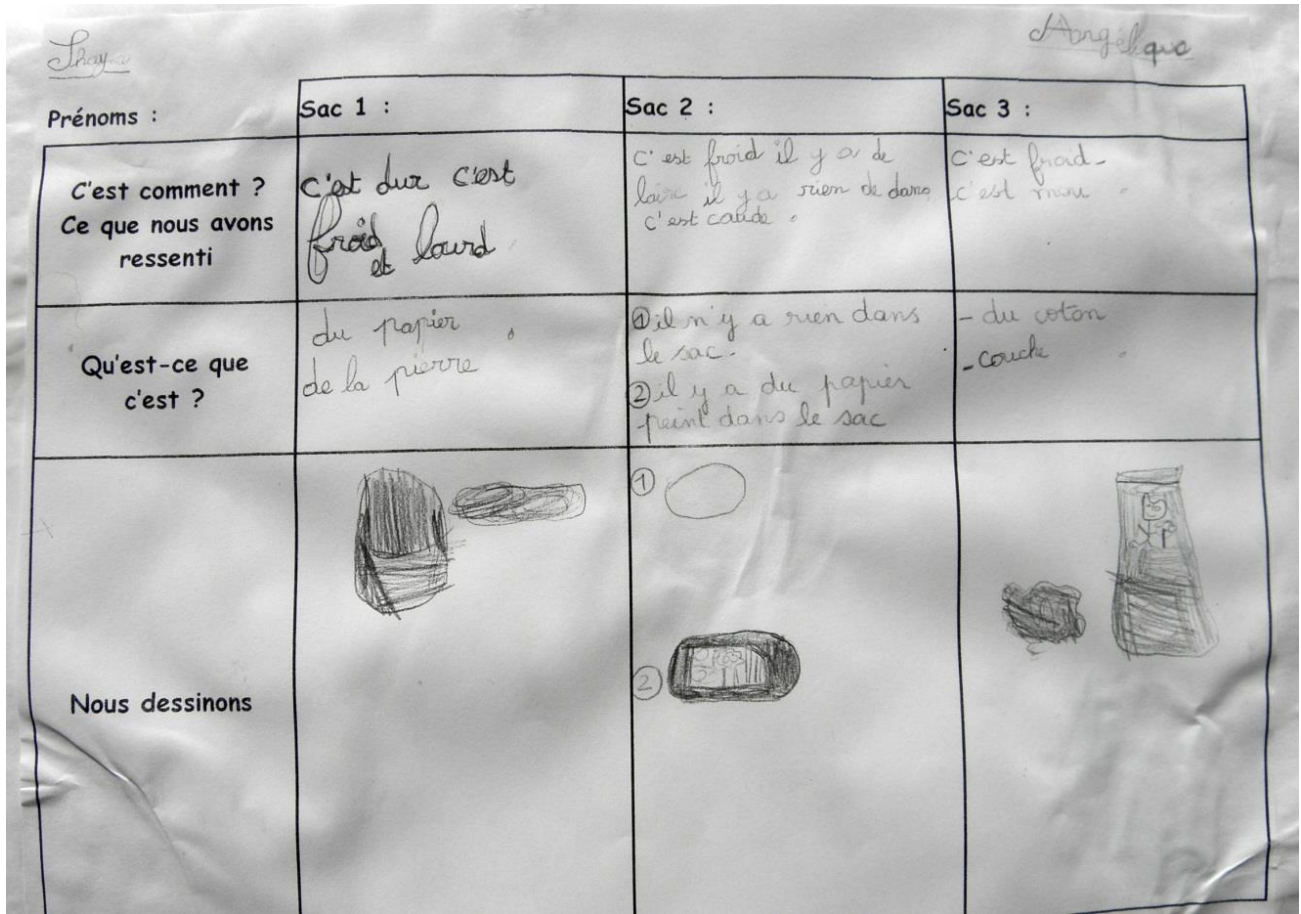 Angélique
Prénoms :
Sac 1 :
Sac 2 :
Sac 3 :
C'est comment ?
Ce que nous avons
ressenti
c'est dur c'est
froid
et lourd
C'est froid il y a de
laire il y a rien de dans
c'est caude.
C'est froid-
c'est mou.
Qu'est-ce que
c'est ?
du papier
de la pierre
① il n'y a rien dans
le sac.
② il y a du papier
peint dans le sac
- du coton
- couche
Nous dessinons
①
②